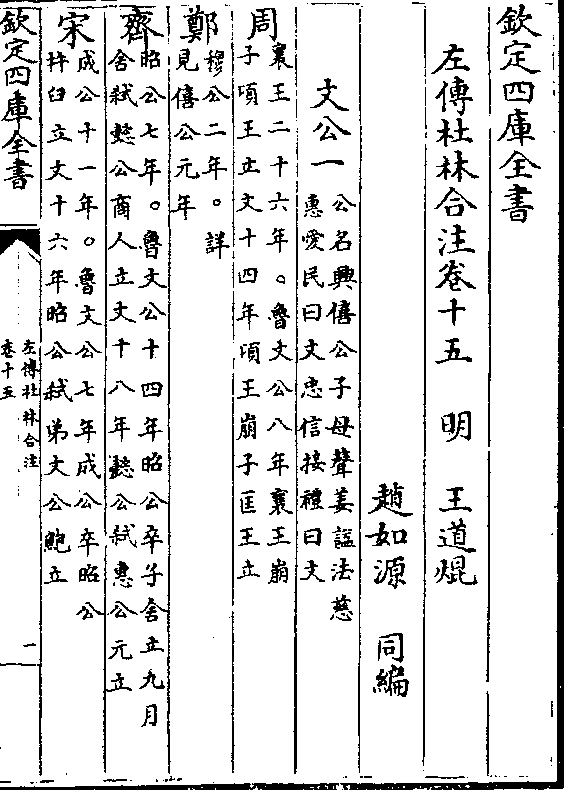 欽定四庫全書
左傳杜林合注卷十五 明 王道焜
趙如源 同編
文公一 公名興僖公子母聲姜諡法慈
惠愛民曰文忠信接禮曰文
周 襄王二十六年。魯文公八年襄王崩
子頃王立文十四年頃王崩子匡王立
鄭 穆公二年。詳
見僖公元年
齊 昭公七年。魯文公十四年昭公卒子舍立九月
舍弑懿公商人立文十八年懿公弑惠公元立
宋 成公十一年。魯文公七年成公卒昭公
杵臼立文十六年昭公弑弟文公鮑立
欽定四庫全書
左傳杜林合注
卷十五
一